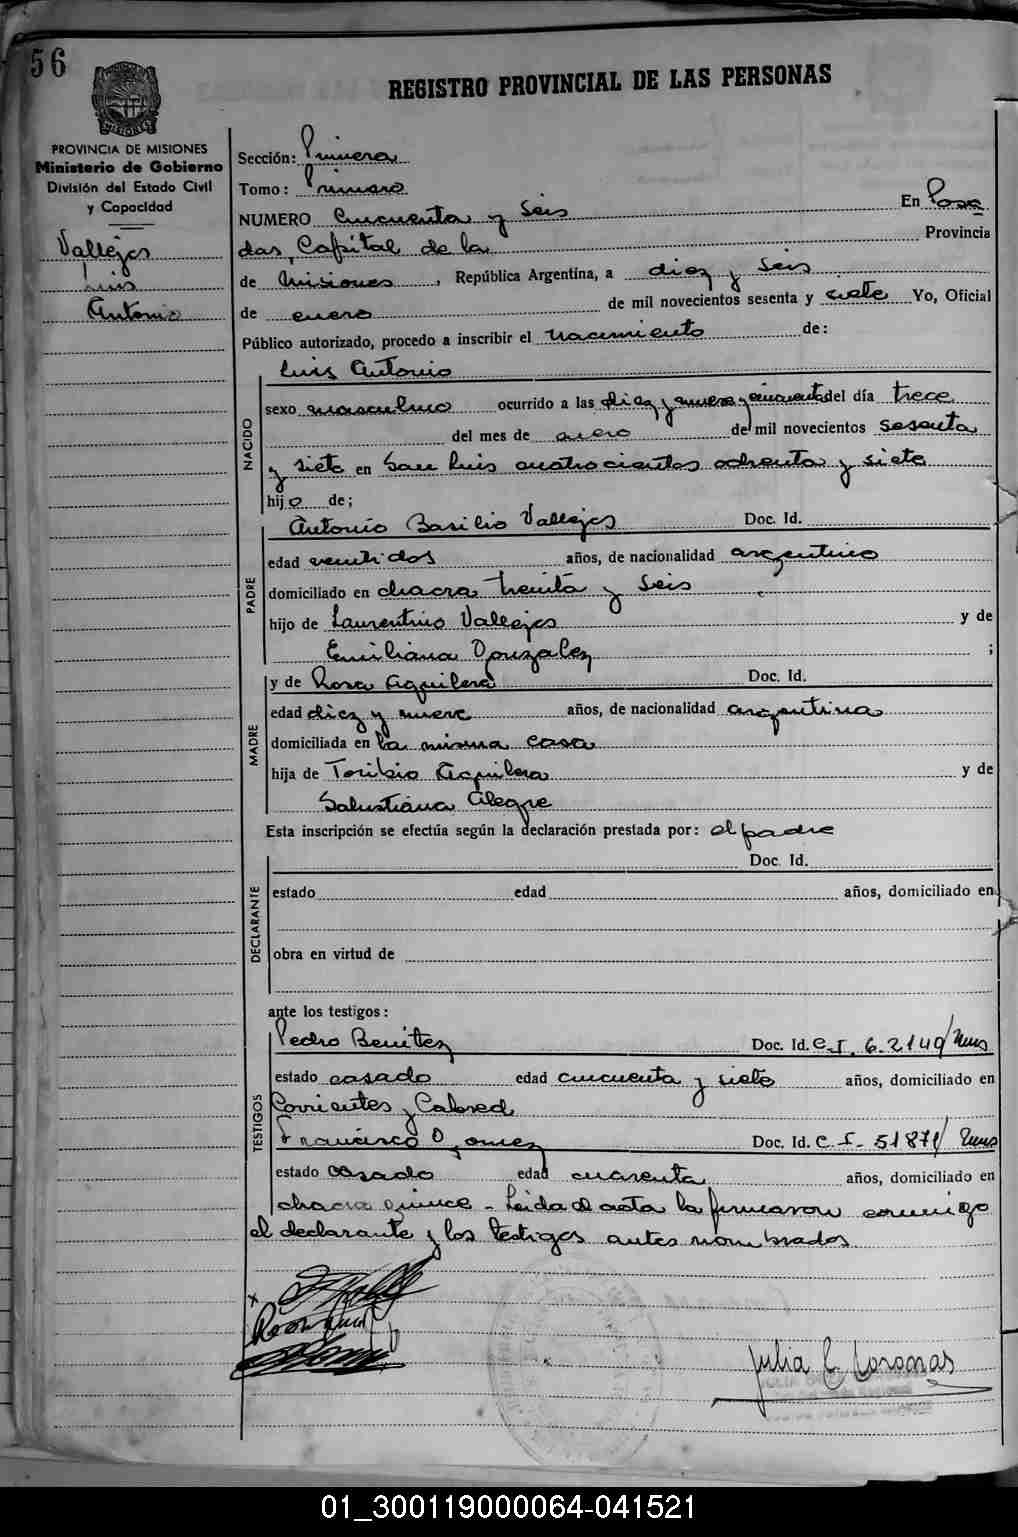 56
REGISTRO PROVINCIAL DE LAS PERSONAS
MISIONES
PROVINCIA DE MISIONES
Ministerio de Gobierno
División del Estado Civil
y Capacidad
Vallejos
Luis
Antonio
Sección: Primera
Tomo: Primero
NUMERO Cincuenta y Seis En Posa
das, Capital de la Provincia
de Misiones, República Argentina, a diez y seis
de enero de mil novecientos sesenta y siete Yo, Oficial
Público autorizado, procedo a inscribir el nacimiento de:
NACIDO
Luis Antonio
sexo masculino ocurrido a las diez y nueve y cincuenta del día trece
del mes de enero de mil novecientos sesenta
y siete en San Luis cuatrocientos ochenta y siete
hijo de;
PADRE
Antonio Basilio Vallejos Doc. Id.
edad veintidos años, de nacionalidad argentino
domiciliado en chacra treinta y seis
hijo de Laurentino Vallejos y de
Emiliana Gonzalez ;
MADRE
y de Rosa Aguilera Doc. Id.
edad diez y nueve años, de nacionalidad argentina
domiciliada en la misma casa
hija de Toribio Aguilera y de
Salustiana Alegre
Esta inscripción se efectúa según la declaración prestada por: el padre
DECLARANTE
Doc. Id.
estado edad años, domiciliado en
obra en virtud de
ante los testigos:
TESTIGOS
Pedro Benitez Doc. Id. C.I. 6.2140/Mnes
estado casado edad cincuenta y siete años, domiciliado en
Corrientes y Cabred
Francisco Gomez Doc. Id. C.I. 51871/Mnes
estado casado edad cuarenta años, domiciliado en
chacra quince - Leida el acta la firmaron conmigo
el declarante y los testigos antes nombrados
Julia C. Coronas
01_300119000064-041521